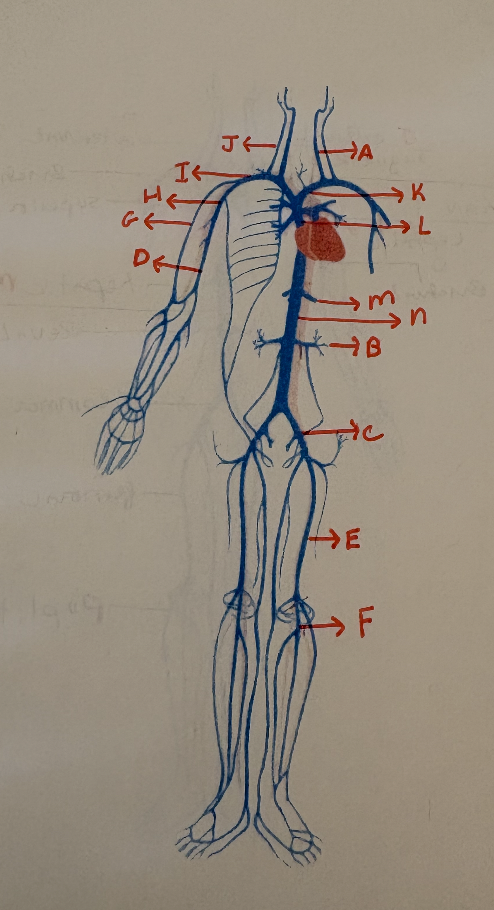 J
A
I
H
K
G
L
D
m
n
B
C
E
F